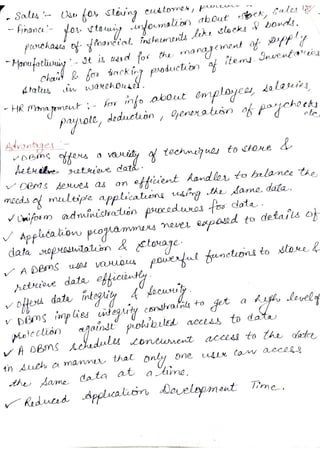 - Sales :- Use for storing customer,
- Finance :- for storing information about stock, sales
purchases of financial instruments like stocks & bonds.
- Manufacturing :- It is used for the management of supply
chain & for tracking production of items. Inventories
status in warehouses.
- HR Management :- For info about employees, salaries,
payroll, deduction, generation of paychecks
etc.
Advantages :-
✓ DBMS offers a variety of techniques to store &
retrieve data.
✓ DBMS serves as an efficient handler to balance the
needs of multiple applications using the same data.
✓ Uniform administration procedures for data.
✓ Application programmers never exposed to details of
data representation & storage.
✓ A DBMS uses various powerful functions to store &
retrieve data efficiently.
✓ Offers data integrity & security.
✓ DBMS implies integrity constraints to get a high level of
protection against prohibited access to data
✓ A DBMS schedules concurrent access to the data
in such a manner that only one user can access
the same data at a time.
✓ Reduced Application Development Time.